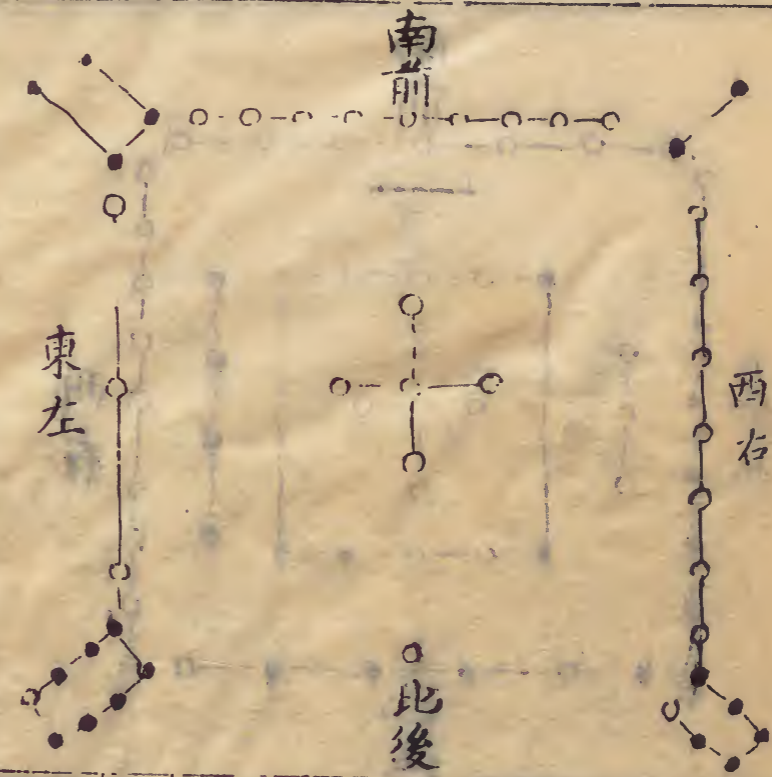 南前
東左
西右
北後